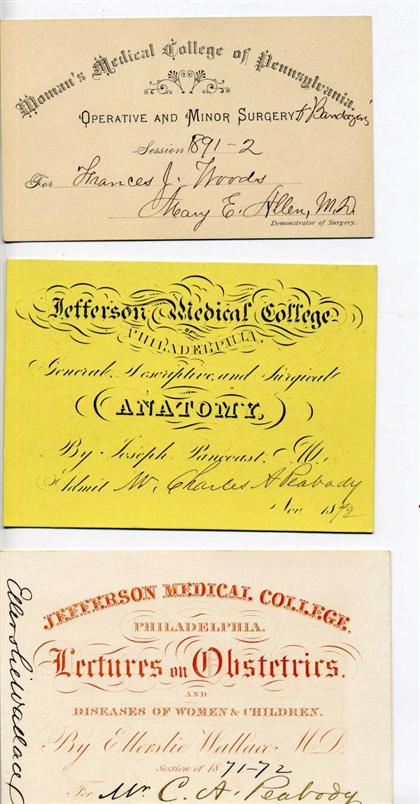 Woman's Medical College of Pennsylvania.
OPERATIVE AND MINOR SURGERY & Bandaging
Session 1891-2
For Frances J. Woods
Mary E. Allen, M.D.
Demonstrator of Surgery.
Jefferson Medical College
OF
PHILADELPHIA,
General, Descriptive, and Surgical
ANATOMY,
By Joseph Pancoast, M.D.
Admit Mr. Charles A Peabody
Nov 1872
JEFFERSON MEDICAL COLLEGE.
PHILADELPHIA.
Lectures on Obstetrics.
AND
DISEASES OF WOMEN & CHILDREN.
By Ellerslie Wallace M.D.
Session of 1871-72
For Mr. C. A. Peabody
Ellerslie Wallace